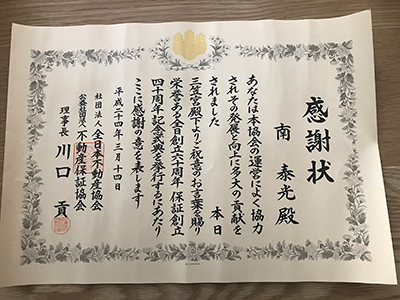 感謝状
南泰光殿
あなたは本協会の運営によく協力
されその発展と向上に多大の貢献を
されました 本日
三笠宮殿下よりご祝意のお言葉を賜り
栄誉ある全日創立六十周年 保証創立
四十周年記念式典を挙行するにあたり
ここに感謝の意を表します
平成二十四年三月十四日
社団法人 全日本不動産協会
公益社団法人 不動産保証協会
理事長 川口貢